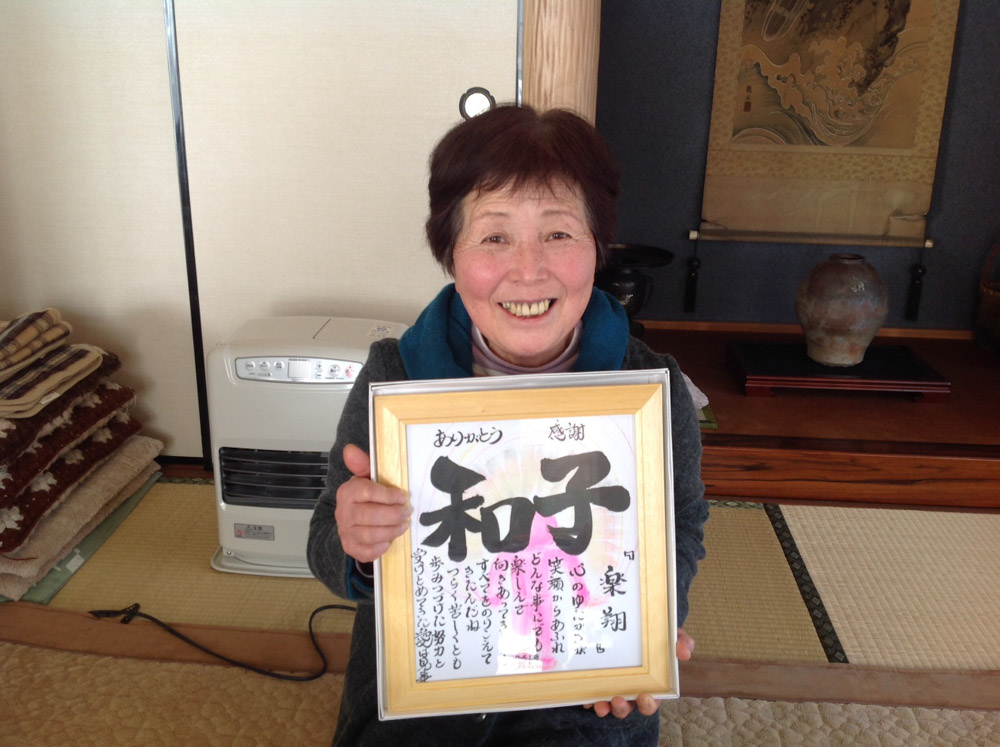 ありがとう
感謝
和子
楽翔
心のゆたかさが
笑顔からあふれ
どんな事にでも
楽しんで
向きあってき
すべてをのりこえて
きたんだね
つらく苦しくとも
歩みつづけた努力と
受けとめてきた愛は見事